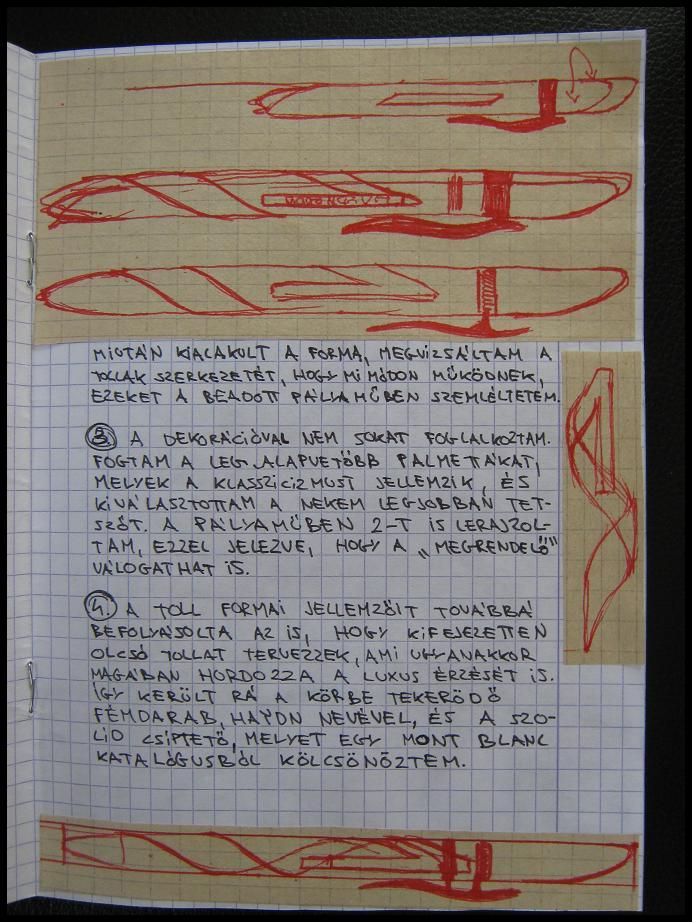 MIUTÁN KIALAKULT A FORMA, MEGVIZSÁLTAM A
TOLLAK SZERKEZETÉT, HOGY MI MÓDON MŰKÖDNEK,
EZEKET A BEADOTT PÁLYAMŰBEN SZEMLÉLTETEM.
3 A DEKORÁCIÓVAL NEM SOKAT FOGLALKOZTAM.
FOGTAM A LEGALAPVETŐBB PALMETTÁKAT,
MELYEK A KLASSZICIZMUST JELLEMZIK, ÉS
KIVÁLASZTOTTAM A NEKEM LEGJOBBAN TET-
SZŐT. A PÁLYAMŰBEN 2-T IS LERAJZOL-
TAM, EZZEL JELEZVE, HOGY A „MEGRENDELŐ"
VÁLOGATHAT IS.
4. A TOLL FORMAI JELLEMZŐIT TOVÁBBÁ
BEFOLYÁSOLTA AZ IS, HOGY KIFEJEZETTEN
OLCSÓ TOLLAT TERVEZZEK, AMI UGYANAKKOR
MAGÁBAN HORDOZZA A LUXUS ÉRZÉSÉT IS.
ÍGY KERÜLT RÁ A KÖRBE TEKERŐDŐ
FÉMDARAB, HAYDN NEVÉVEL, ÉS A SZO-
LID CSÍPTETŐ, MELYET EGY MONT BLANC
KATALÓGUSBÓL KÖLCSÖNÖZTEM.